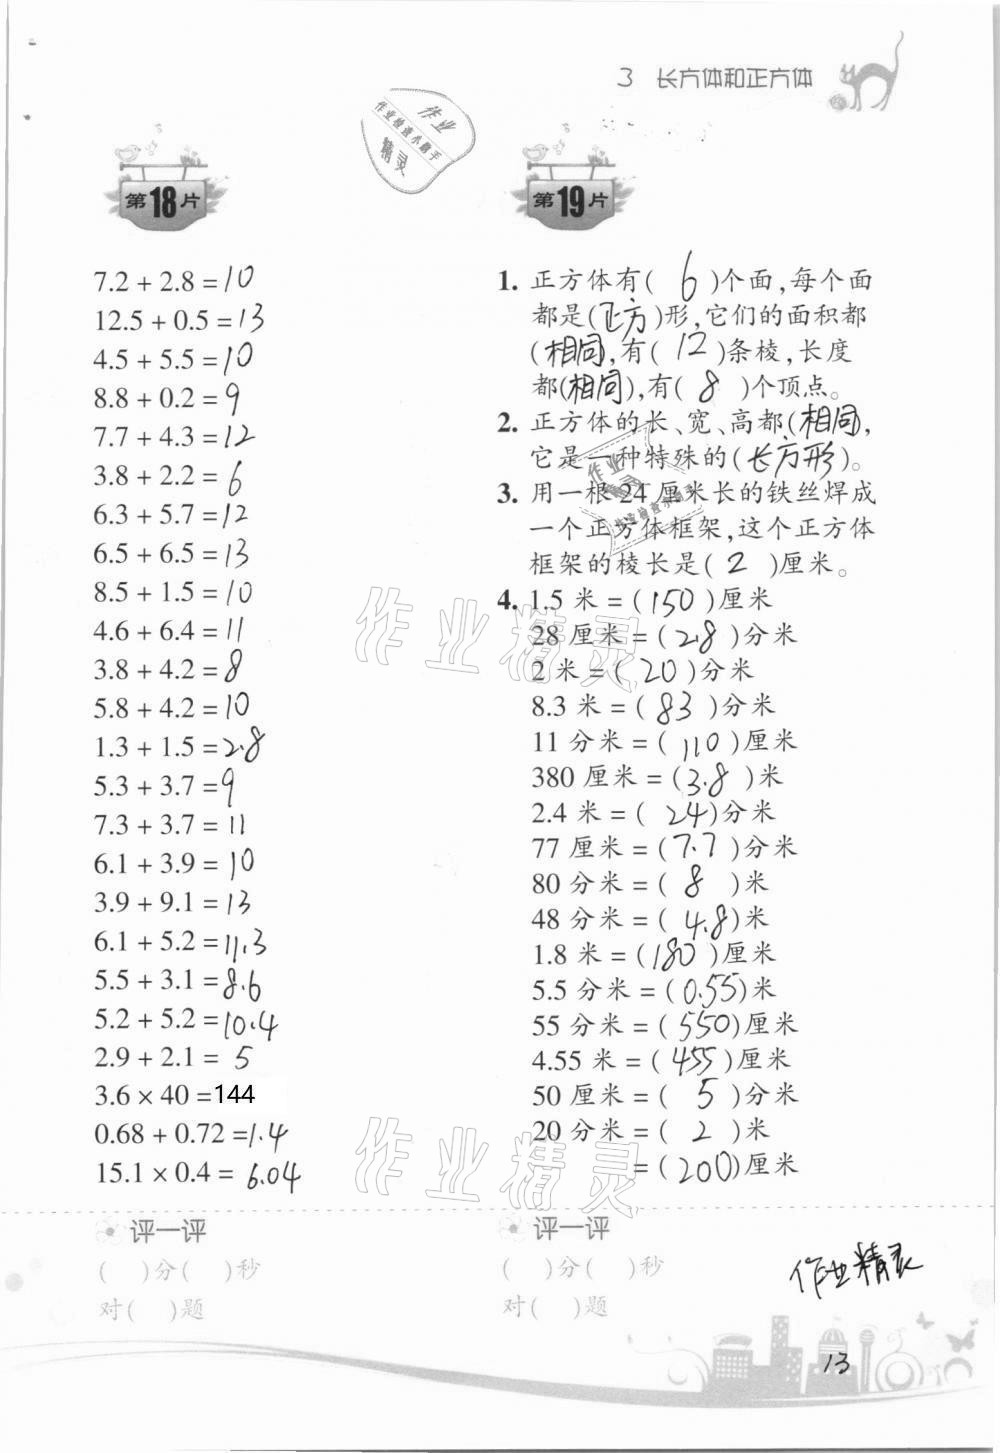 3 长方体和正方体
作业
作业检查小助手
精灵
第18片
7.2 + 2.8 = 10
12.5 + 0.5 = 13
4.5 + 5.5 = 10
8.8 + 0.2 = 9
7.7 + 4.3 = 12
3.8 + 2.2 = 6
6.3 + 5.7 = 12
6.5 + 6.5 = 13
8.5 + 1.5 = 10
4.6 + 6.4 = 11
3.8 + 4.2 = 8
5.8 + 4.2 = 10
1.3 + 1.5 = 2.8
5.3 + 3.7 = 9
7.3 + 3.7 = 11
6.1 + 3.9 = 10
3.9 + 9.1 = 13
6.1 + 5.2 = 11.3
5.5 + 3.1 = 8.6
5.2 + 5.2 = 10.4
2.9 + 2.1 = 5
3.6 × 40 = 144
0.68 + 0.72 = 1.4
15.1 × 0.4 = 6.04
评一评
( )分( )秒
对( )题
第19片
1. 正方体有( 6 )个面,每个面
都是(正方)形,它们的面积都
(相同),有( 12 )条棱,长度
都(相同),有( 8 )个顶点。
2. 正方体的长、宽、高都(相同),
它是一种特殊的(长方形)。
3. 用一根 24 厘米长的铁丝焊成
一个正方体框架,这个正方体
框架的棱长是( 2 )厘米。
4. 1.5 米 = ( 150 )厘米
28 厘米 = ( 2.8 )分米
2 米 = ( 20 )分米
8.3 米 = ( 83 )分米
11 分米 = ( 110 )厘米
380 厘米 = ( 3.8 )米
2.4 米 = ( 24 )分米
77 厘米 = ( 7.7 )分米
80 分米 = ( 8 )米
48 分米 = ( 4.8 )米
1.8 米 = ( 180 )厘米
5.5 分米 = ( 0.55 )米
55 分米 = ( 550 )厘米
4.55 米 = ( 455 )厘米
50 厘米 = ( 5 )分米
20 分米 = ( 2 )米
= ( 200 )厘米
评一评
( )分( )秒
对( )题
作业
精灵
作业检查小助手
作业精灵
作业精灵
作业精灵
13